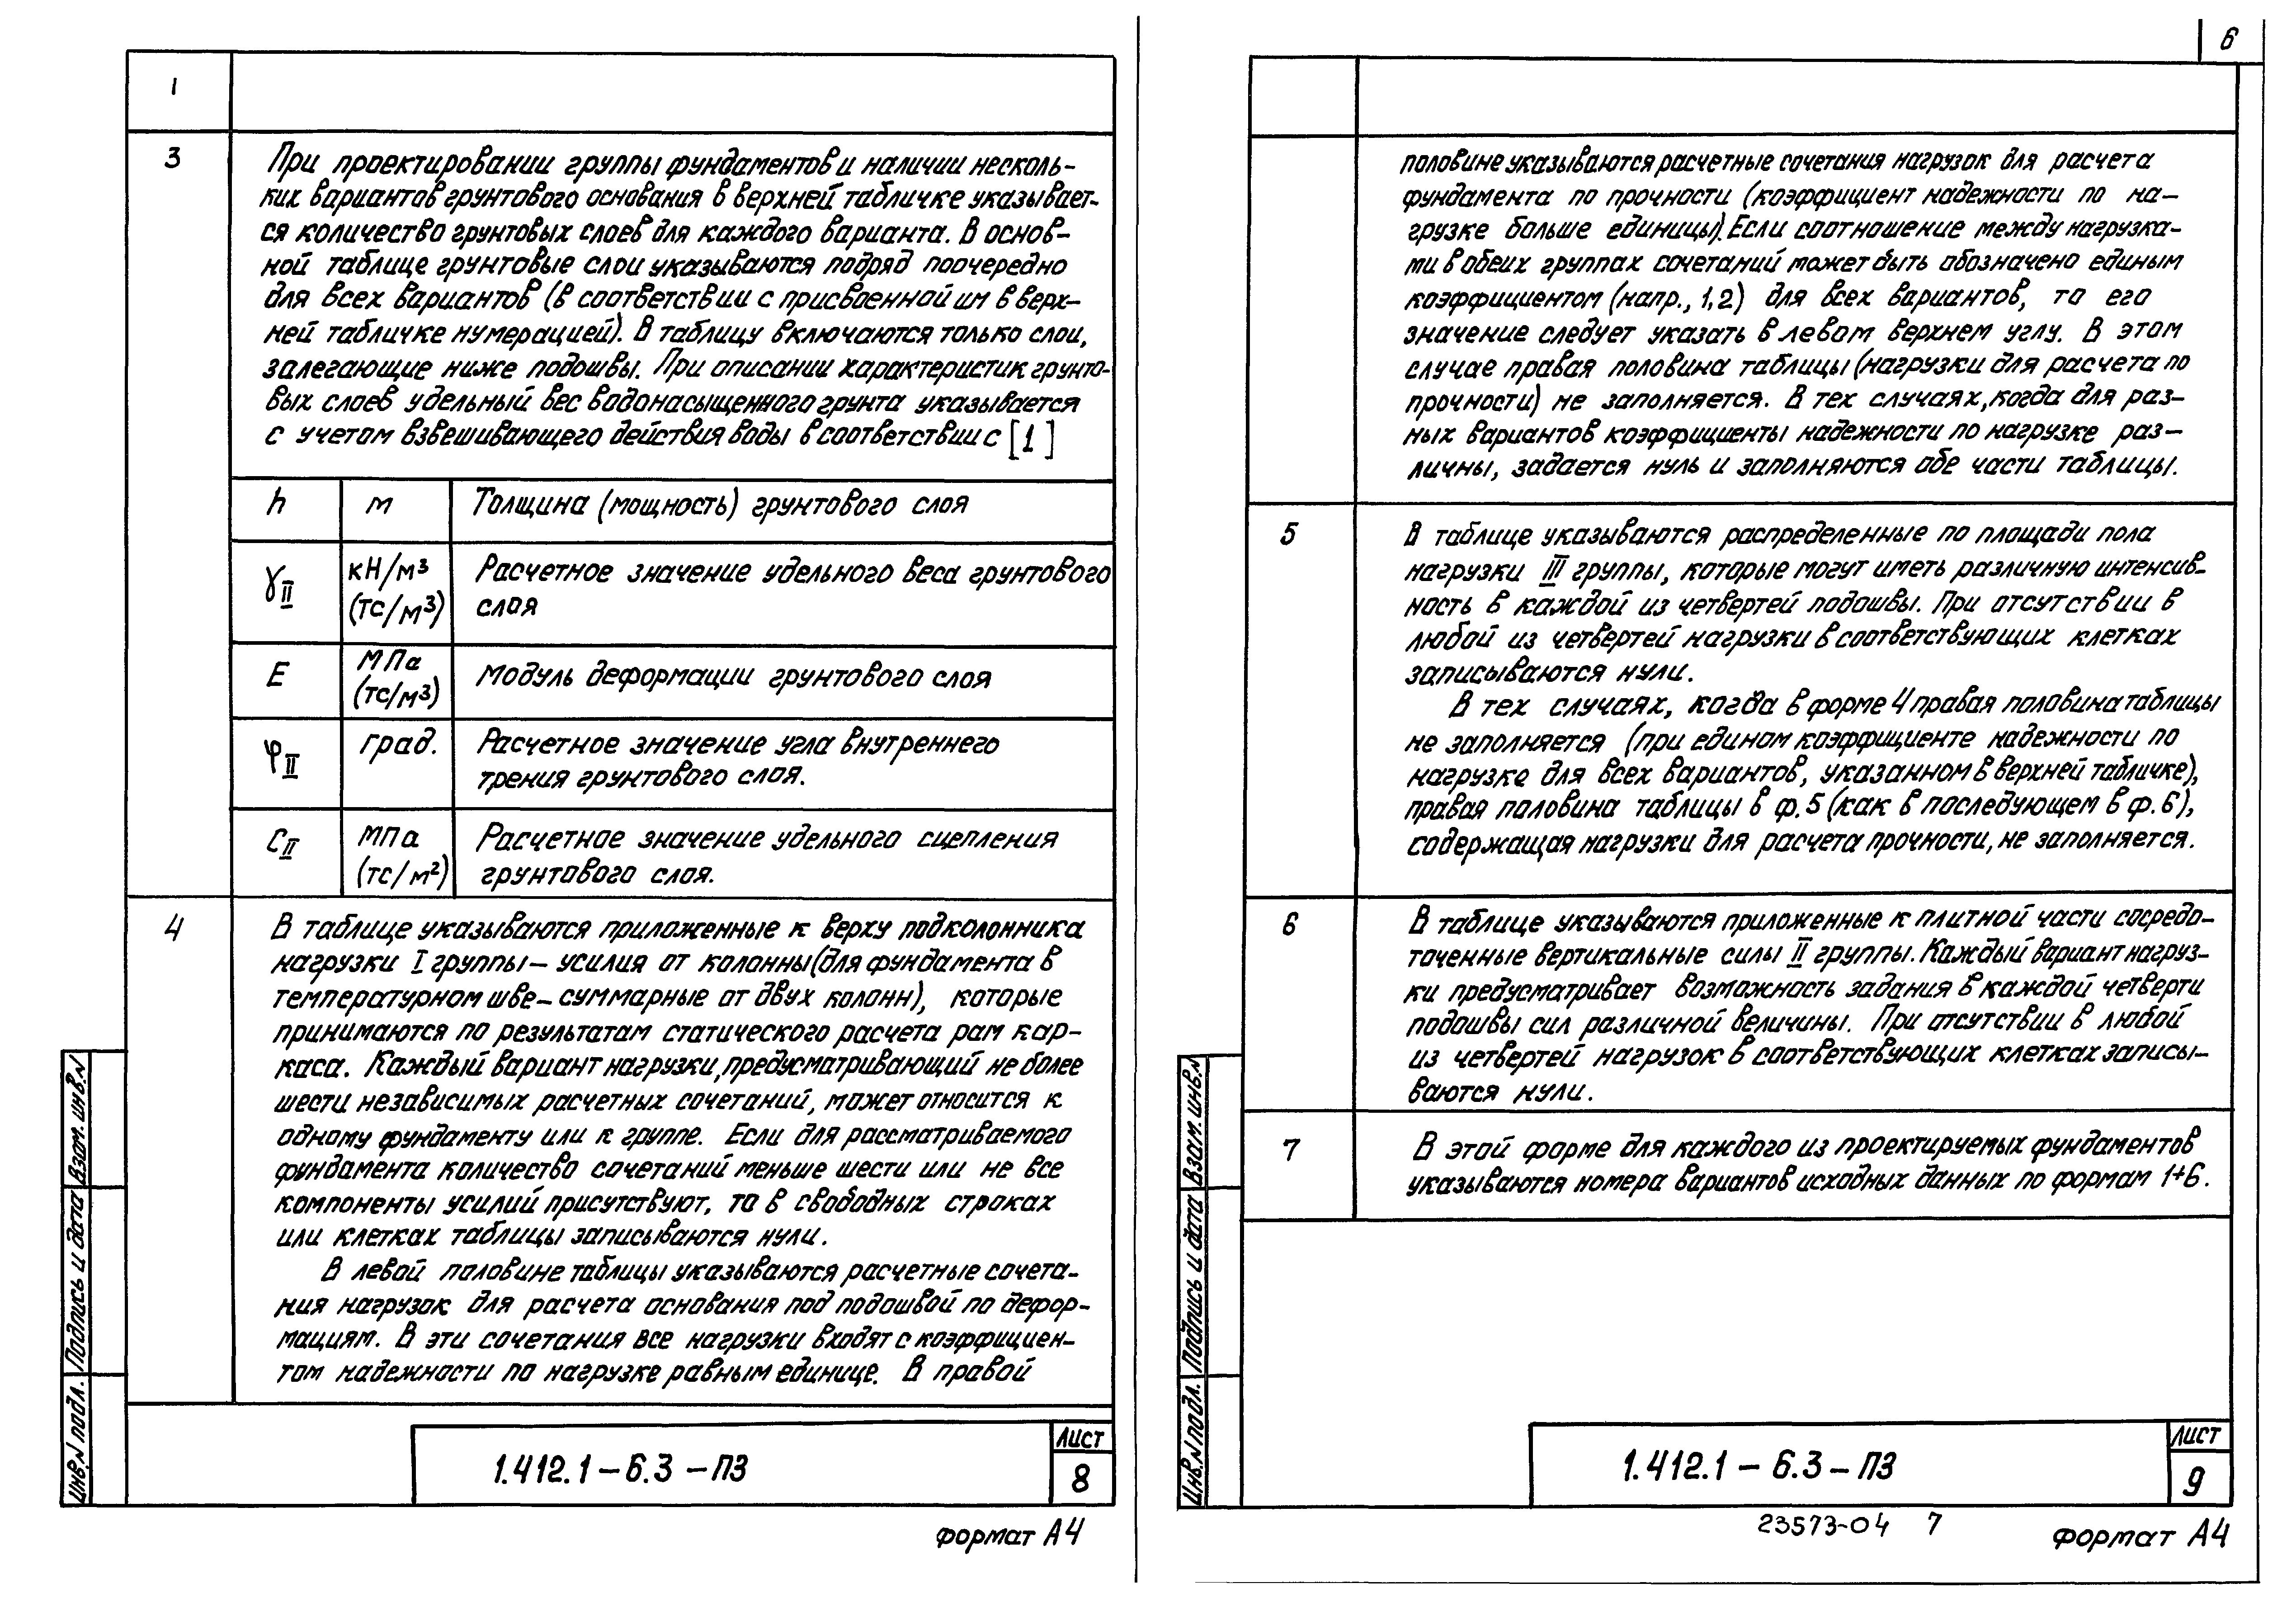 1
3
При проектировании группы фундаментов и наличии несколь-
ких вариантов грунтового основания в верхней табличке указывает-
ся количество грунтовых слоев для каждого варианта. В основ-
ной таблице грунтовые слои указываются подряд поочередно
для всех вариантов (в соответствии с присвоенной им в верх-
ней табличке нумерацией). В таблицу включаются только слои,
залегающие ниже подошвы. При описании характеристик грунто-
вых слоев удельный вес водонасыщенного грунта указывается
с учетом взвешивающего действия воды в соответствии с [1]
h м Толщина (мощность) грунтового слоя
γII кН/м³ (тс/м³) Расчетное значение удельного веса грунтового
слоя
E МПа (тс/м³) Модуль деформации грунтового слоя
φII град. Расчетное значение угла внутреннего
трения грунтового слоя.
CII МПа (тс/м²) Расчетное значение удельного сцепления
грунтового слоя.
4
В таблице указываются приложенные к верху подколонника
нагрузки I группы – усилия от колонны (для фундамента в
температурном шве – суммарные от двух колонн), которые
принимаются по результатам статического расчета рам кар-
каса. Каждый вариант нагрузки, предусматривающий не более
шести независимых расчетных сочетаний, может относится к
одному фундаменту или к группе. Если для рассматриваемого
фундамента количество сочетаний меньше шести или не все
компоненты усилий присутствуют, то в свободных строках
или клетках таблицы записываются нули.
В левой половине таблицы указываются расчетные сочета-
ния нагрузок для расчета основания под подошвой по дефор-
мациям. В эти сочетания все нагрузки входят с коэффициен-
том надежности по нагрузке равным единице. В правой
Инв.N подл. Подпись и дата Взам. инв.N
1.412.1 – 6.3 – ПЗ
Лист
8
формат А4
6
половине указываются расчетные сочетания нагрузок для расчета
фундамента по прочности (коэффициент надежности по на-
грузке больше единицы). Если соотношение между нагрузка-
ми в обеих группах сочетаний может быть обозначено единым
коэффициентом (напр., 1,2) для всех вариантов, то его
значение следует указать в левом верхнем углу. В этом
случае правая половина таблицы (нагрузки для расчета по
прочности) не заполняется. В тех случаях, когда для раз-
ных вариантов коэффициенты надежности по нагрузке раз-
личны, задается нуль и заполняются обе части таблицы.
5
В таблице указываются распределенные по площади пола
нагрузки III группы, которые могут иметь различную интенсив-
ность в каждой из четвертей подошвы. При отсутствии в
любой из четвертей нагрузки в соответствующих клетках
записываются нули.
В тех случаях, когда в форме 4 правая половина таблицы
не заполняется (при едином коэффициенте надежности по
нагрузке для всех вариантов, указанном в верхней табличке),
правая половина таблицы в ф. 5 (как в последующем в ф. 6),
содержащая нагрузки для расчета прочности, не заполняется.
6
В таблице указываются приложенные к плитной части сосредо-
точенные вертикальные силы II группы. Каждый вариант нагруз-
ки предусматривает возможность задания в каждой четверти
подошвы сил различной величины. При отсутствии в любой
из четвертей нагрузок в соответствующих клетках записы-
ваются нули.
7
В этой форме для каждого из проектируемых фундаментов
указываются номера вариантов исходных данных по формам 1÷6.
Инв.N подл. Подпись и дата Взам. инв.N
1.412.1 – 6.3 – ПЗ
Лист
9
23573-04 7
формат А4